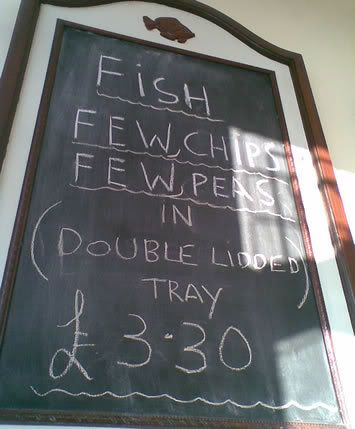 FiSH
FEW, CHIPS
FEW, PEAS
IN
(DOUBLE LIDDED)
TRAY
£3·30